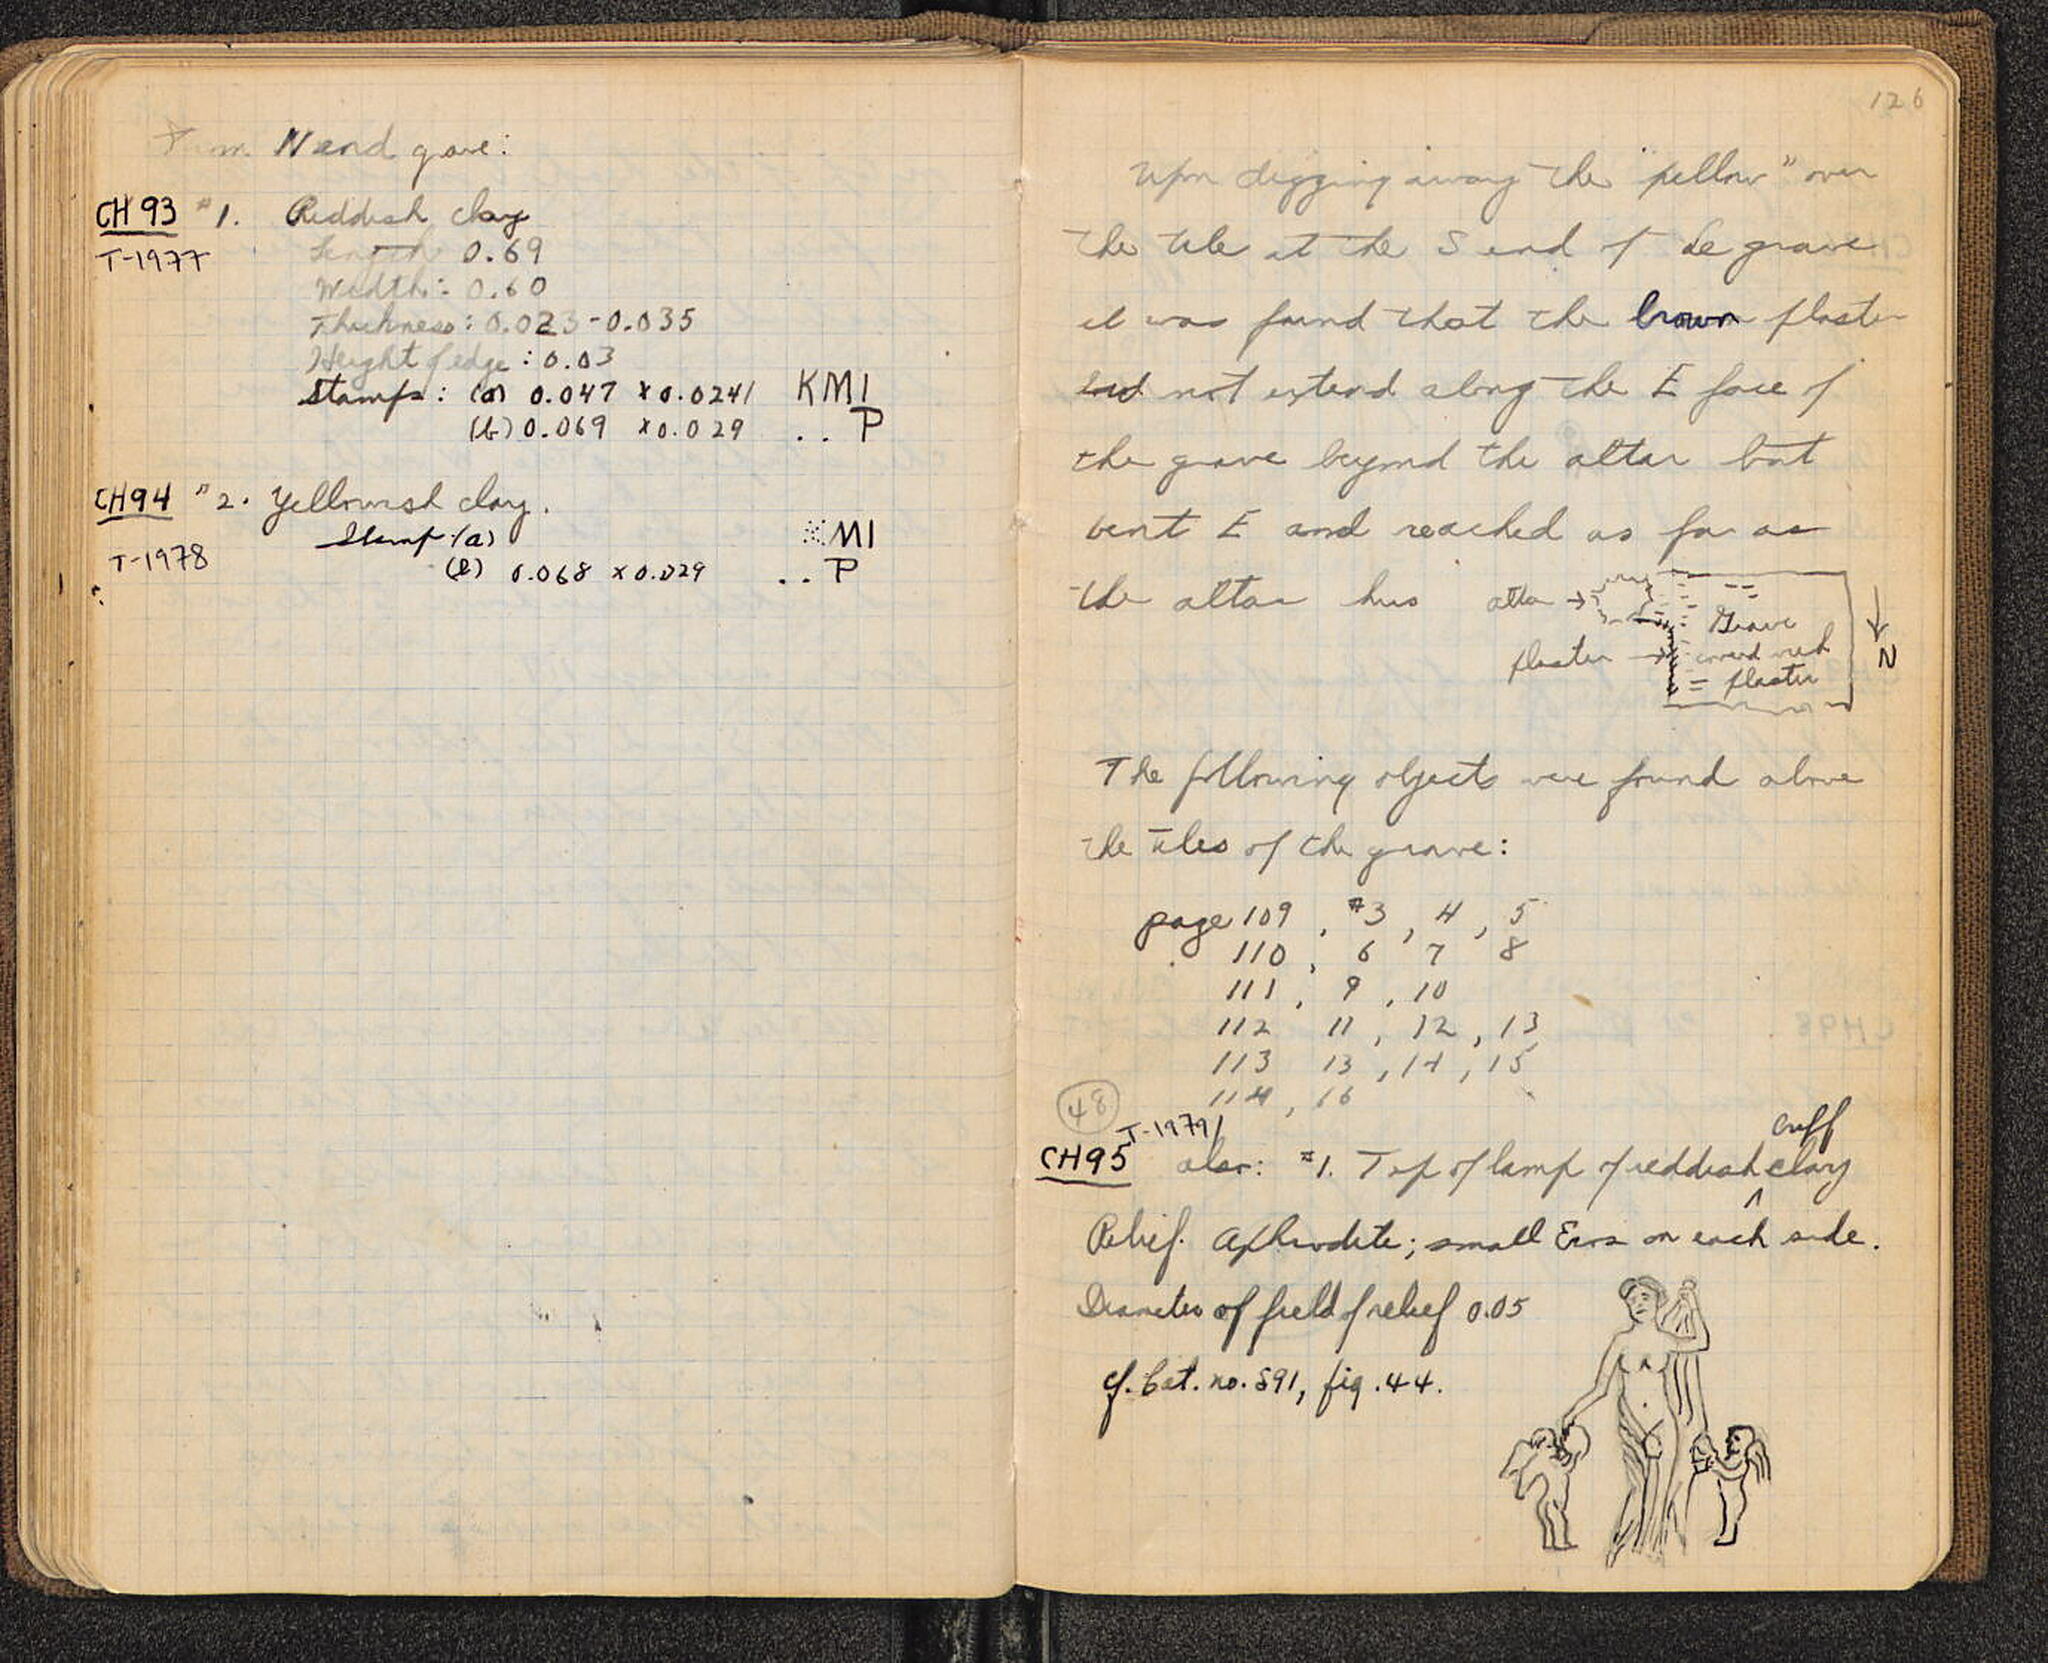 From N end grave:
CH 93 #1. Reddish clay
T-1977 Length 0.69
Width: 0.60
Thickness: 0.023-0.035
Height of edge: 0.03
Stamps: (a) 0.047 x 0.0241 KMI
(b) 0.069 x 0.029 . . P
CH94 #2. Yellowish clay.
Stamp: (a) MI
T-1978 (b) 0.068 x 0.029 . . P
126
Upon digging away the "yellow" over
the tile at the S end of the grave
it was found that the brown plaster
did not extend along the E face of
the grave beyond the altar but
bent E and reached as far as
the altar thus altar →
Grave
plaster → covered with
= plaster
N
The following objects were found above
the tiles of the grave:
page 109, #3, 4, 5
110, 6 7 8
111, 9, 10
112 11, 12, 13
113 13, 14, 15
114, 16
48
T-1979 buff
CH95 also: #1. Top of lamp of reddish ^ clay
Relief. Aphrodite; small Eros on each side.
Diameter of field of relief 0.05
cf. Cat. no. 591, fig. 44.